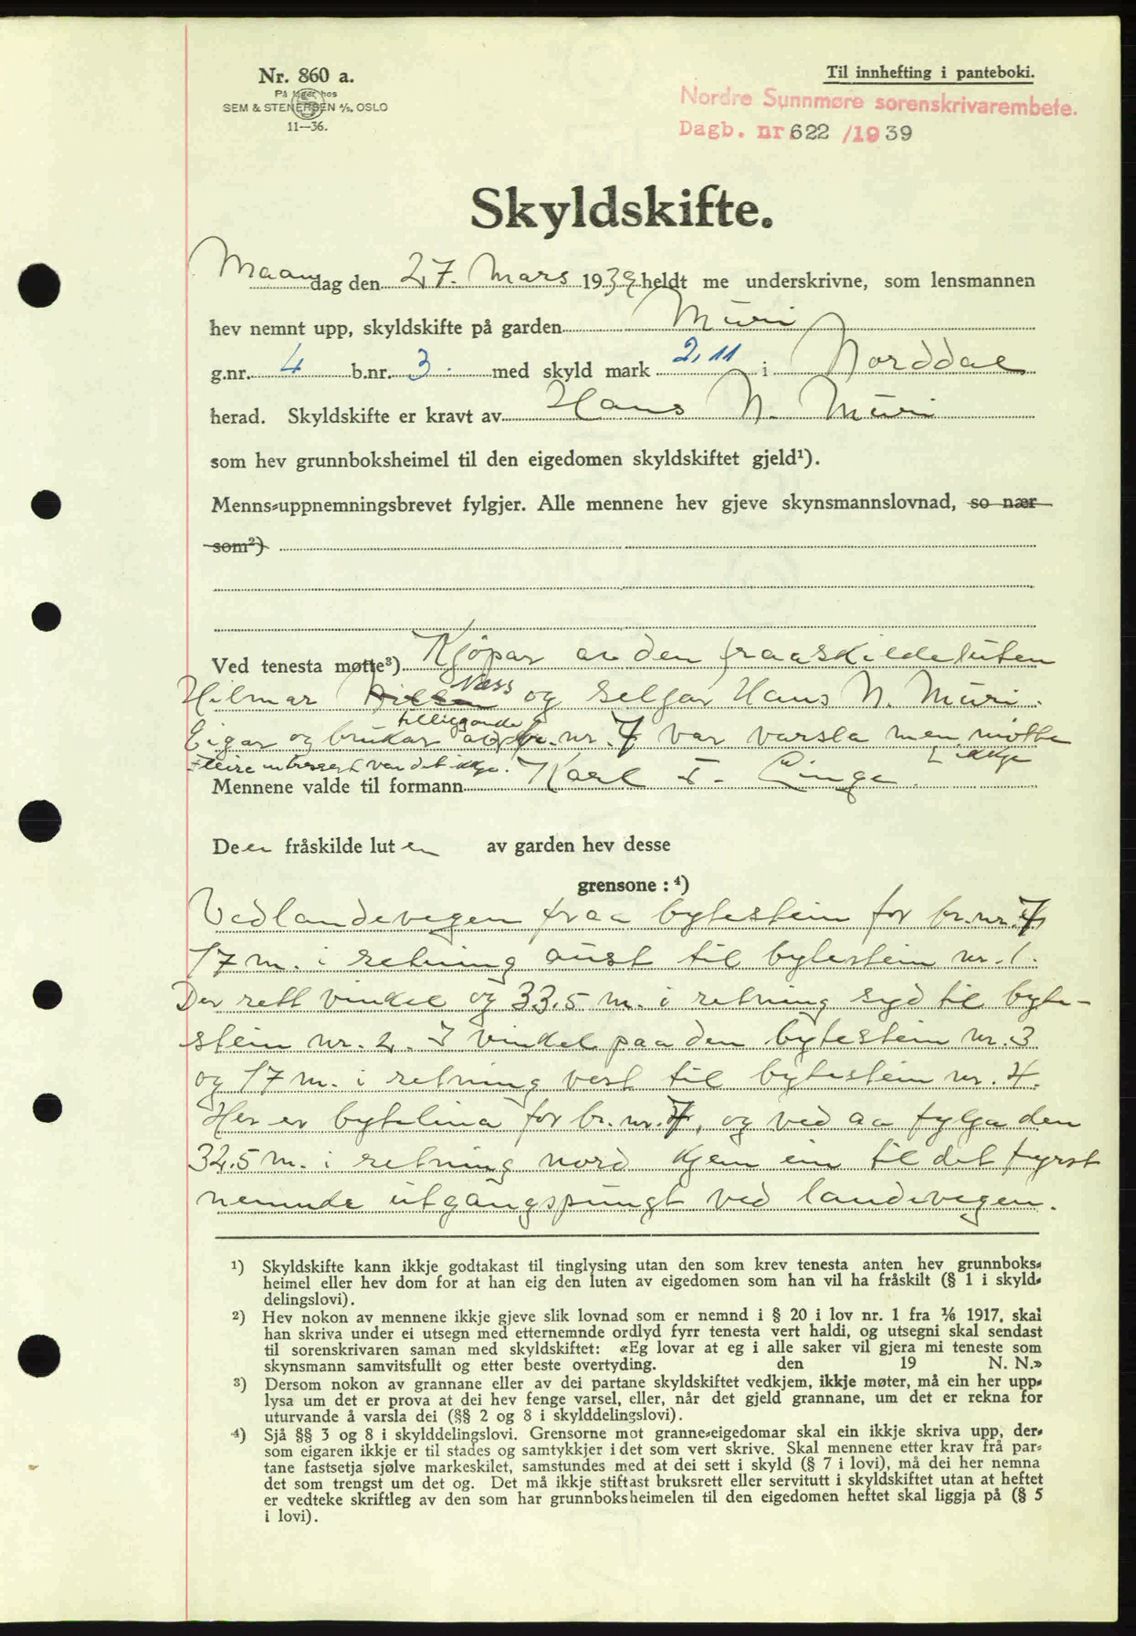 Nr. 860 a.
På lager hos
SEM & STENERSEN A/S, OSLO
11—36.
Til innhefting i panteboki.
Nordre Sunnmøre sorenskrivarembete.
Dagb. nr 622 /1939
Skyldskifte.
Maandag den 27. Mars 1939 heldt me underskrivne, som lensmannen
hev nemnt upp, skyldskifte på garden Muri
g.nr. 4 b.nr. 3 . med skyld mark 2,11 i Norddal
herad. Skyldskifte er kravt av Hans N. Muri
som hev grunnboksheimel til den eigedomen skyldskiftet gjeld¹).
Menns-uppnemningsbrevet fylgjer. Alle mennene hev gjeve skynsmannslovnad, so nær
som²)
Ved tenesta møtte³) Kjöpar av den fraaskildeluten
Hilmar Næss og seljar Hans N. Muri.
Eigar og brukar av tilliggande br. nr. 7 var varsla men møtte
ikkje
Fleire interessert var det ikkje.
Mennene valde til formann Karl I. Linge
Deen fråskilde luten av garden hev desse
grensone : ⁴)
Vedlandevegen fraa bytestein for br. nr. 7
17 m. i retning aust til bytestein nr. 1.
Der rett vinkel og 33,5 m. i retning syd til byte-
stein nr. 2. I vinkel paa den bytestein nr. 3
og 17 m. i retning vest til bytestein nr. 4.
Her er bytelina for br. nr. 7, og ved aa fylga den
32,5 m. i retning nord kjem ein til det fyrst
nemnde utgangspungt ved landevegen.
¹) Skyldskifte kann ikkje godtakast til tinglysing utan den som krev tenesta anten hev grunnboks-
heimel eller hev dom for at han eig den luten av eigedomen som han vil ha fråskilt (§ 1 i skyld-
delingslovi).
²) Hev nokon av mennene ikkje gjeve slik lovnad som er nemnd i § 20 i lov nr. 1 fra ⅛ 1917, skal
han skriva under ei utsegn med etternemnde ordlyd fyrr tenesta vert haldi, og utsegni skal sendast
til sorenskrivaren saman med skyldskiftet: «Eg lovar at eg i alle saker vil gjera mi teneste som
skynsmann samvitsfullt og etter beste overtyding. den 19 N. N.»
³) Dersom nokon av grannane eller av dei partane skyldskiftet vedkjem, ikkje møter, må ein her upp-
lysa um det er prova at dei hev fenge varsel, eller, når det gjeld grannane, um det er rekna for
uturvande å varsla dei (§§ 2 og 8 i skylddelingslovi).
⁴) Sjå §§ 3 og 8 i skylddelingslovi. Grensorne mot granne-eigedomar skal ein ikkje skriva upp, der-
som eigaren ikkje er til stades og samtykkjer i det som vert skrive. Skal mennene etter krav frå par-
tane fastsetja sjølve markeskilet, samstundes med at dei sett i skyld (§ 7 i lovi), må dei her nemna
det som trengst um det og. Det må ikkje stiftast bruksrett eller servitutt i skyldskiftet utan at heftet
er vedteke skriftleg av den som har grunnboksheimelen til den eigedomen heftet skal liggja på (§ 5
i lovi).